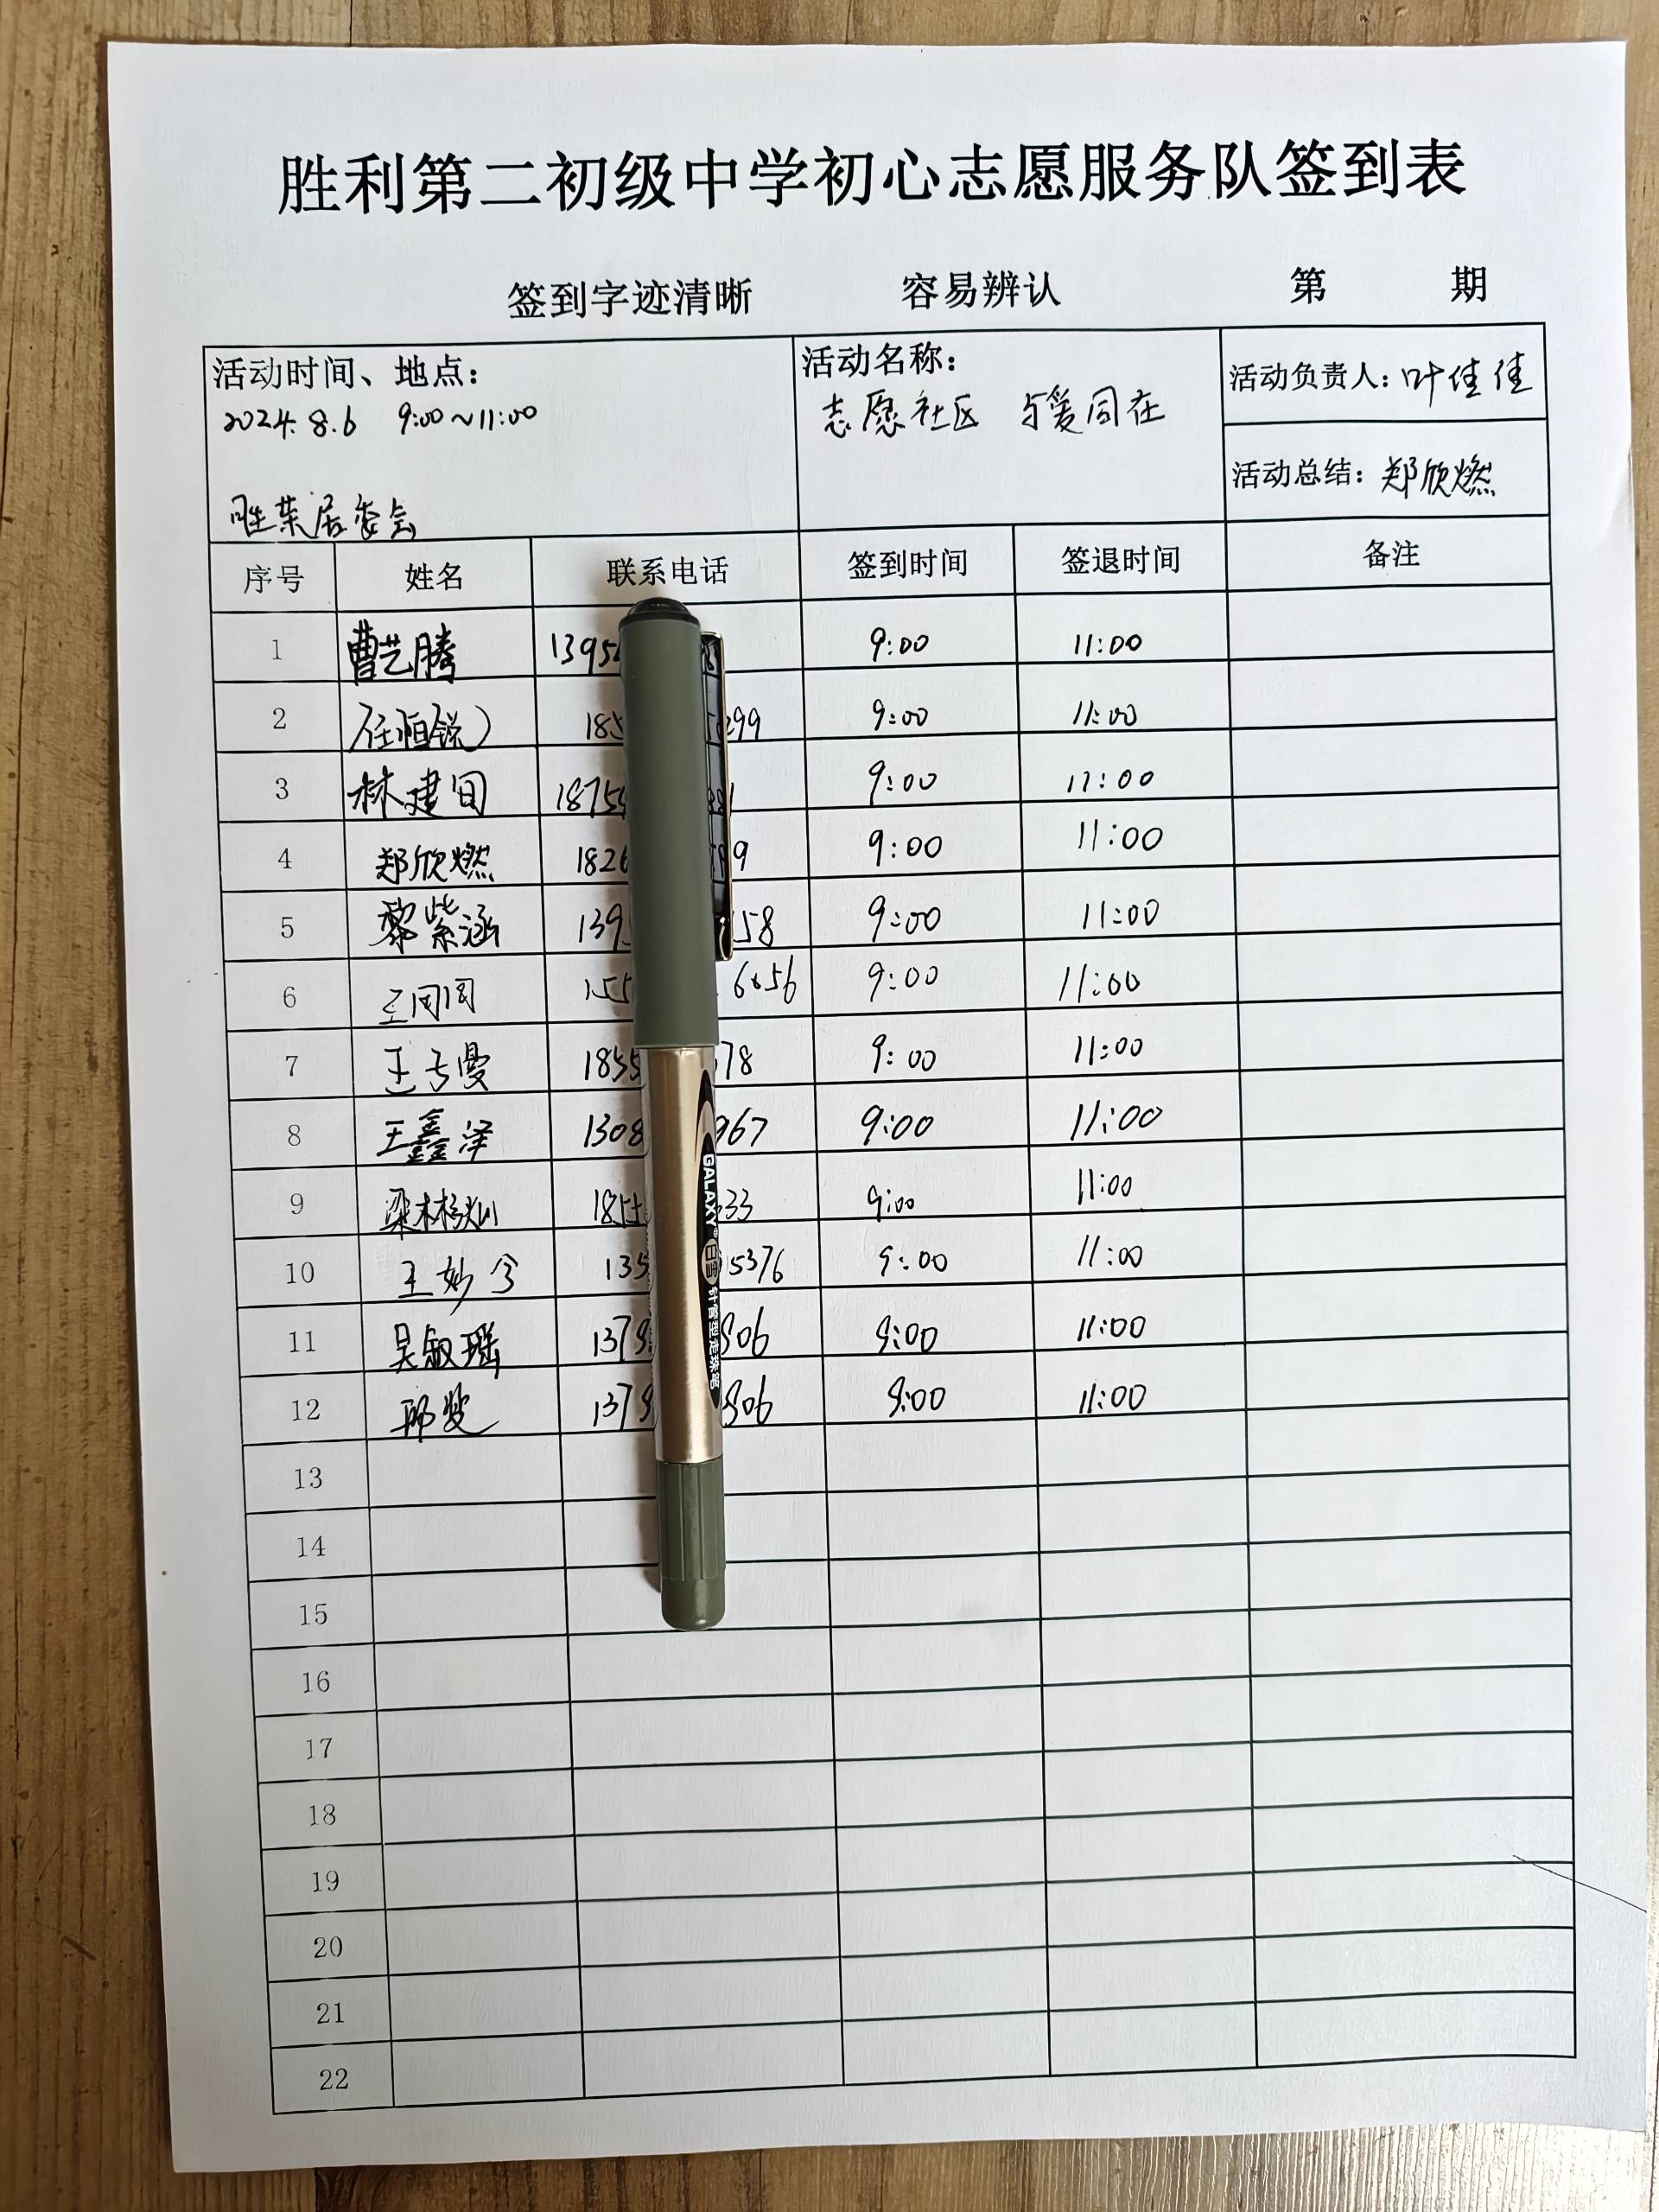 胜利第二初级中学初心志愿服务队签到表
签到字迹清晰 容易辨认 第 期
活动时间、地点： 活动名称： 活动负责人：叶佳佳
2024.8.6 9:00~11:00 志愿社区 与爱同在
胜荣居委会 活动总结：郑欣燃
序号 姓名 联系电话 签到时间 签退时间 备注
1 曹艺腾 1395 9:00 11:00
2 任恒锐 185 299 9:00 11:00
3 林建 1875 9:00 11:00
4 郑欣燃 1826 9 9:00 11:00
5 黎紫涵 139 58 9:00 11:00
6 王同同 155 6656 9:00 11:00
7 王子曼 1855 78 9:00 11:00
8 王鑫泽 1308 967 9:00 11:00
9 梁林杉灿 185 33 9:00 11:00
10 王妙今 135 5376 9:00 11:00
11 吴敏瑶 1379 906 9:00 11:00
12 1379 906 9:00 11:00
13
14
15
16
17
18
19
20
21
22
GALAXY 白雪 针管型走珠笔